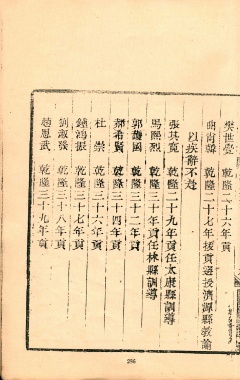 樊世臺 乾隆二十六年貢
胡肯韓 乾隆二十七年拔貢選授濟源縣教諭
以疾辭不赴
張其寬 乾隆二十九年貢任太康縣訓導
馬熙烈 乾隆三十年貢任林縣訓導
郭護國 乾隆三十二年貢
郝希賢 乾隆三十四年貢
杜崇 乾隆三十六年貢
鍾鴻振 乾隆三十七年貢
劉淑發 乾隆三十八年貢
趙恩武 乾隆三十九年貢
296